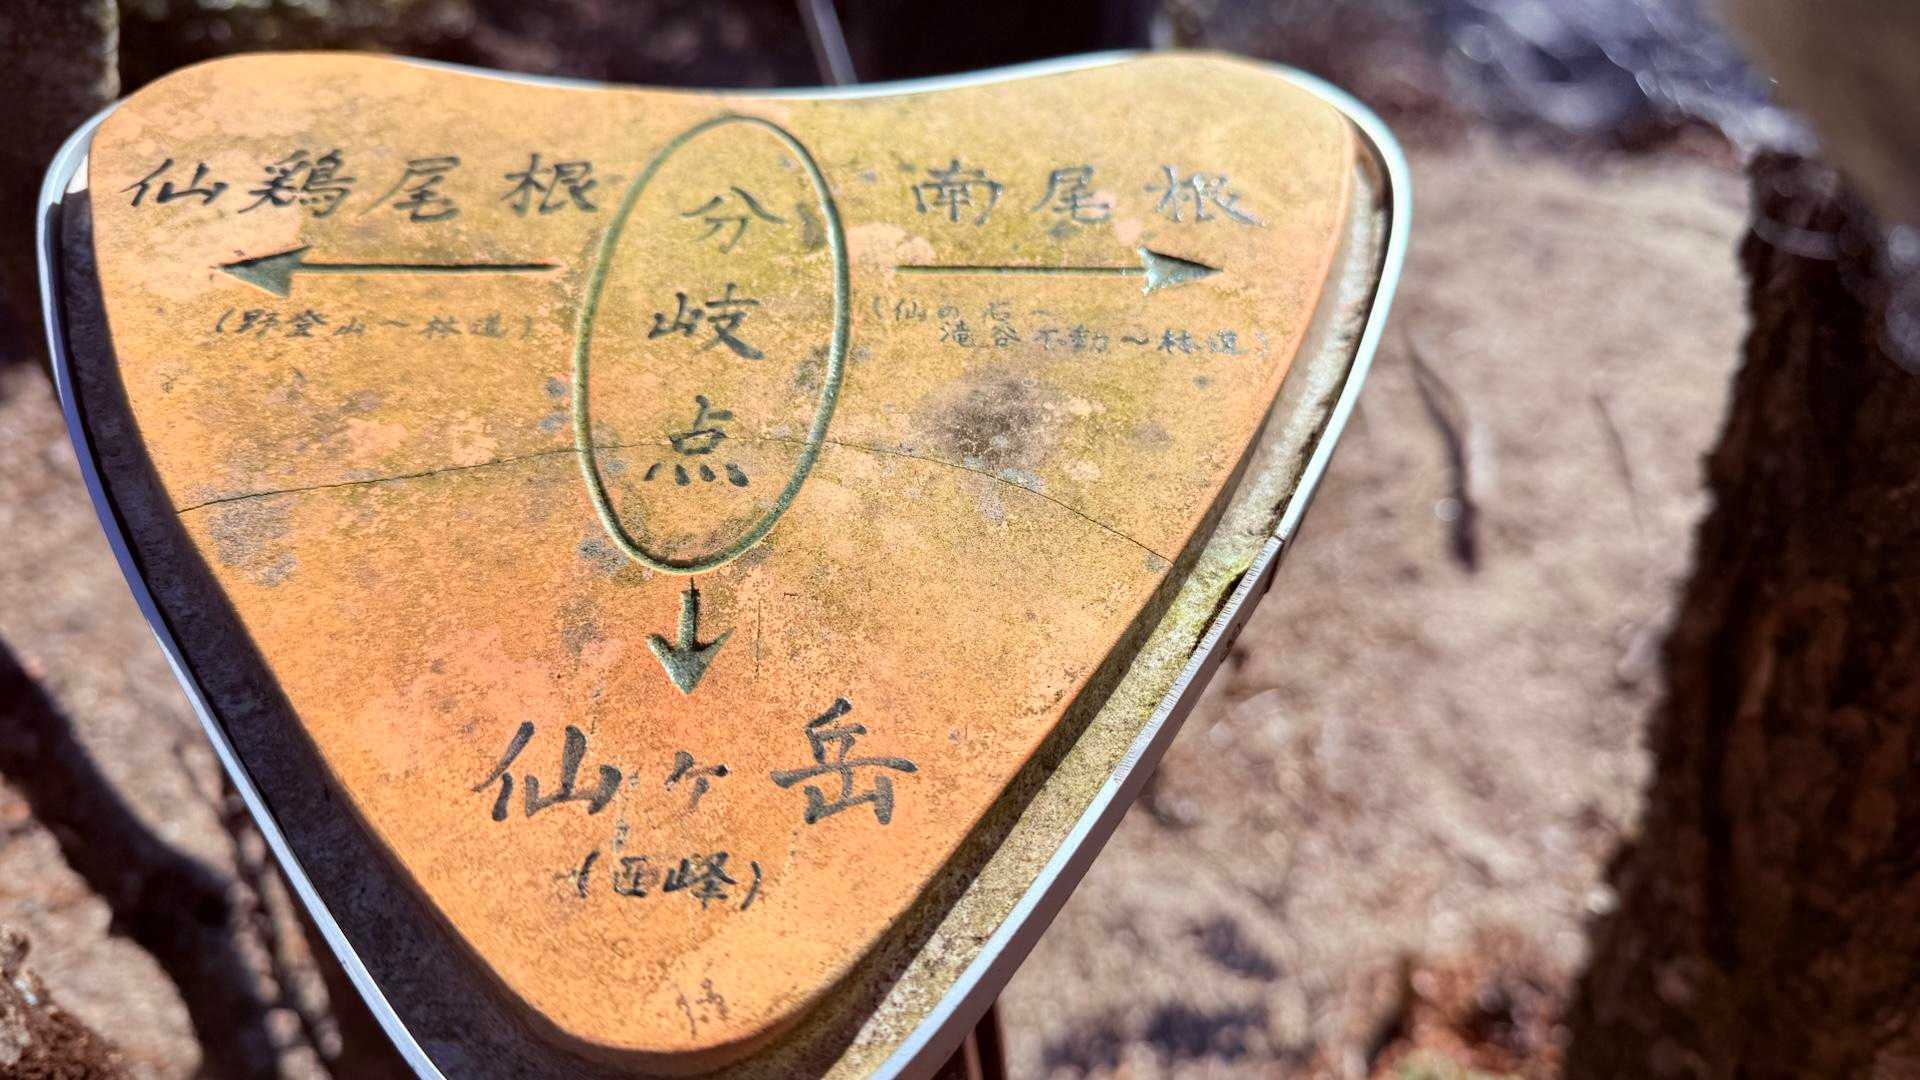 仙鶏尾根
分岐点
南尾根
(野登山～林道)
(仙の石～
滝谷不動～林道)
仙ヶ岳
(西峰)